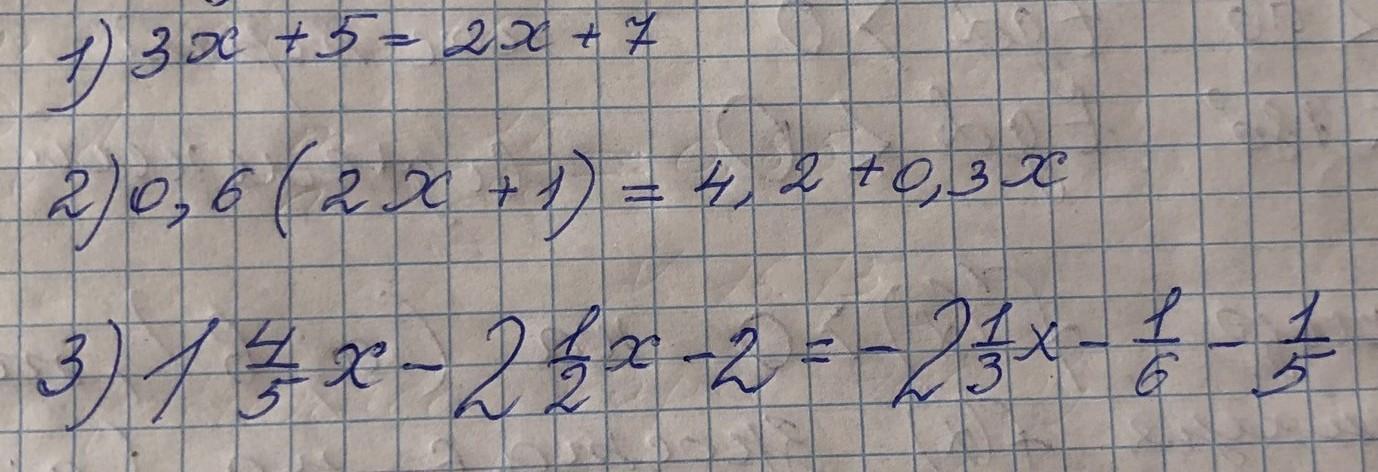 1) 3x + 5 = 2x + 7
2) 0,6 (2x + 1) = 4,2 + 0,3x
3) 1 4/5 x - 2 1/2 x - 2 = - 2 1/3 x - 1/6 - 1/5